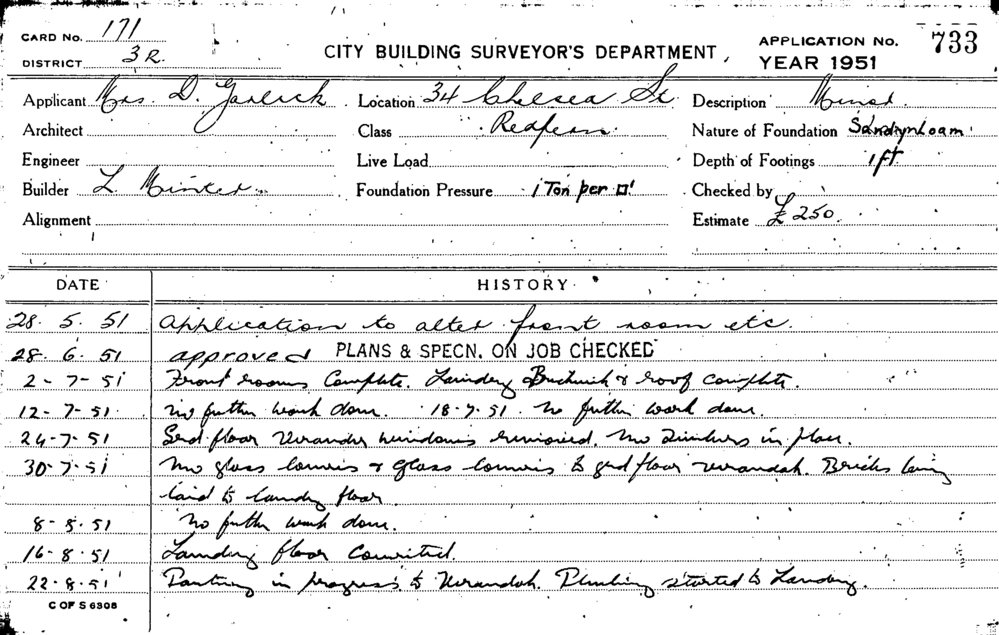 CARD No. 171
DISTRICT 3 R.
CITY BUILDING SURVEYOR'S DEPARTMENT
APPLICATION No. 733
YEAR 1951
Applicant Mrs. D. Garlick
Location 34 Chelsea St
Description Minor
Architect
Class Redfern
Nature of Foundation Sandy Loam
Engineer
Live Load
Depth of Footings 1 ft.
Builder L.
Foundation Pressure 1 Ton per □'
Checked by
Alignment
Estimate £ 250.
DATE HISTORY
28. 5. 51 Application to alter front room etc.
28. 6. 51 approved PLANS & SPECN. ON JOB CHECKED
2 - 7 - 51 Front rooms Complete. Laundry Brickwork & roof complete.
12 - 7 - 51 No further work done. 18 - 7 - 51. No further work done.
24 - 7 - 51 floor Verandah windows removed. in place.
30 - 7 - 51 glass louvres & Glass louvres to floor verandah. Bricks being
laid to laundry floor
8 - 8 - 51 No further work done.
16 - 8 - 51 Laundry floor
22 - 8 - 51 Painting in progress to Verandah. Plumbing started to Laundry.
C OF S 6308